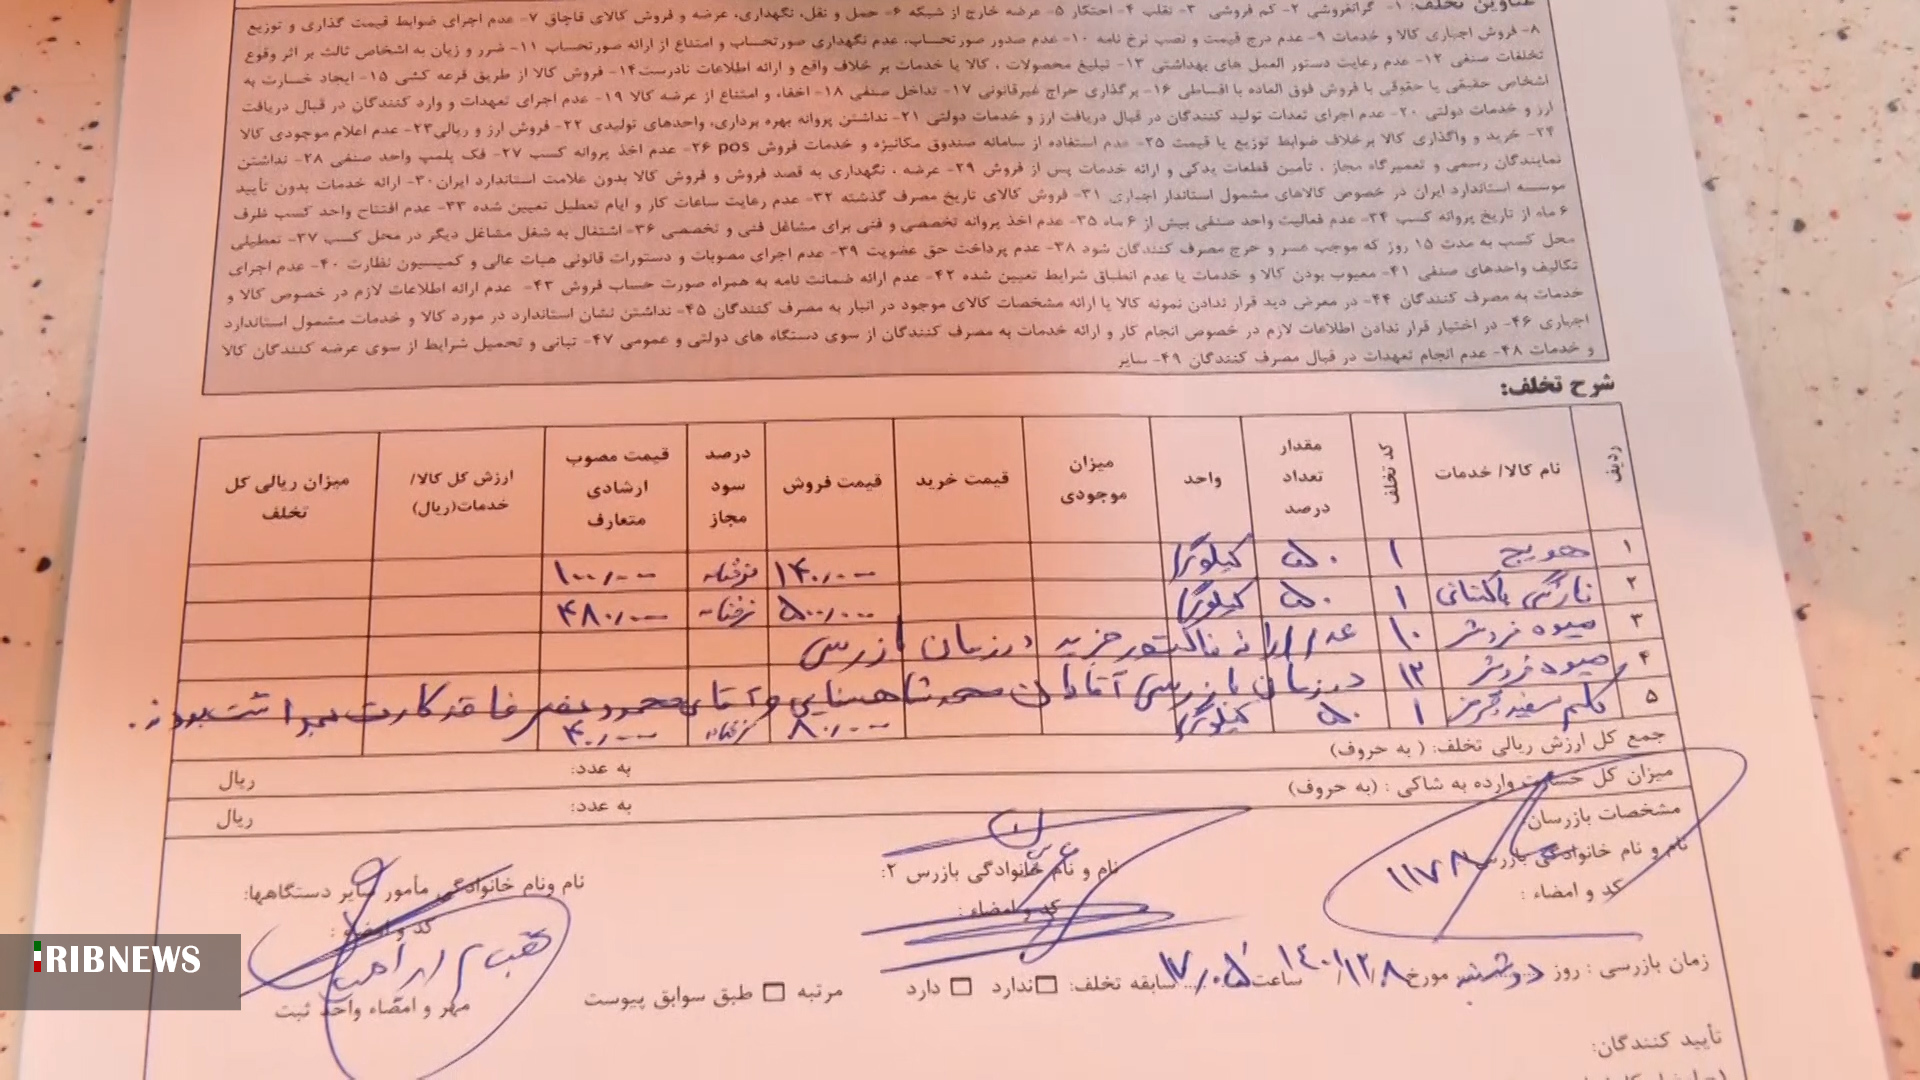 عناوین تخلف: ۱- گرانفروشی ۲- کم فروشی ۳- تقلب ۴- احتکار ۵- عرضه خارج از شبکه ۶- حمل و نقل، نگهداری، عرضه و فروش کالای قاچاق ۷- عدم اجرای ضوابط قیمت گذاری و توزیع
۸- فروش اجباری کالا و خدمات ۹- عدم درج قیمت و نصب نرخ نامه ۱۰- عدم صدور صورتحساب، عدم نگهداری صورتحساب و امتناع از ارائه صورتحساب ۱۱- ضرر و زیان به اشخاص ثالث بر اثر وقوع
تخلفات صنفی ۱۲- عدم رعایت دستور العمل های بهداشتی ۱۳- تبلیغ محصولات ، کالا یا خدمات بر خلاف واقع و ارائه اطلاعات نادرست ۱۴- فروش کالا از طریق قرعه کشی ۱۵- ایجاد خسارت به
اشخاص حقیقی یا حقوقی با فروش فوق العاده یا اقساطی ۱۶- برگذاری حراج غیرقانونی ۱۷- تداخل صنفی ۱۸- اخفاء و امتناع از عرضه کالا ۱۹- عدم اجرای تعهدات و وارد کنندگان در قبال دریافت
ارز و خدمات دولتی ۲۰- عدم اجرای تعدات تولید کنندگان در قبال دریافت ارز و خدمات دولتی ۲۱- نداشتن پروانه بهره برداری، واحدهای تولیدی ۲۲- فروش ارز و ریالی ۲۳- عدم اعلام موجودی کالا
۲۴- خرید و واگذاری کالا برخلاف ضوابط توزیع یا قیمت ۲۵- عدم استفاده از سامانه صندوق مکانیزه و خدمات فروش pos ۲۶- عدم اخذ پروانه کسب ۲۷- فک پلمپ واحد صنفی ۲۸- نداشتن
نمایندگان رسمی و تعمیرگاه مجاز ، تأمین قطعات یدکی و ارائه خدمات پس از فروش ۲۹- عرضه ، نگهداری به قصد فروش و فروش کالا بدون علامت استاندارد ایران ۳۰- ارائه خدمات بدون تأیید
موسسه استاندارد ایران در خصوص کالاهای مشمول استاندار اجباری ۳۱- فروش کالای تاریخ مصرف گذشته ۳۲- عدم رعایت ساعات کار و ایام تعطیل تعیین شده ۳۳- عدم افتتاح واحد کسب ظرف
۶ ماه از تاریخ پروانه کسب ۳۴- عدم فعالیت واحد صنفی بیش از ۶ ماه ۳۵- عدم اخذ پروانه تخصصی و فنی برای مشاغل فنی و تخصصی ۳۶- اشتغال به شغل مشاغل دیگر در محل کسب ۳۷- تعطیلی
محل کسب به مدت ۱۵ روز که موجب عسر و حرج مصرف کنندگان شود ۳۸- عدم پرداخت حق عضویت ۳۹- عدم اجرای مصوبات و دستورات قانونی هیات عالی و کمیسیون نظارت ۴۰- عدم اجرای
تکالیف واحدهای صنفی ۴۱- معیوب بودن کالا و خدمات یا عدم انطباق شرایط تعیین شده ۴۲- عدم ارائه ضمانت نامه به همراه صورت حساب فروش ۴۳- عدم ارائه اطلاعات لازم در خصوص کالا و
خدمات به مصرف کنندگان ۴۴- در معرض دید قرار ندادن نمونه کالا یا ارائه مشخصات کالای موجود در انبار به مصرف کنندگان ۴۵- نداشتن نشان استاندارد در مورد کالا و خدمات مشمول استاندارد
اجباری ۴۶- در اختیار قرار ندادن اطلاعات لازم در خصوص انجام کار و ارائه خدمات به مصرف کنندگان از سوی دستگاه های دولتی و عمومی ۴۷- تبانی و تحمیل شرایط از سوی عرضه کنندگان کالا
و خدمات ۴۸- عدم انجام تعهدات در قبال مصرف کنندگان ۴۹- سایر
شرح تخلف:
ردیف نام کالا/ خدمات کد تخلف مقدار تعداد درصد واحد میزان موجودی قیمت خرید قیمت فروش درصد سود مجاز قیمت مصوب ارشادی متعارف ارزش کل کالا/ خدمات(ریال) میزان ریالی کل تخلف
۱ هویج ۱ ۵۰ کیلوگرم ۱۴۰/۰۰۰ نرخنامه ۱۰۰/۰۰۰
۲ نارنگی پاکستانی ۱ ۵۰ کیلوگرم ۵۰۰/۰۰۰ نرخنامه ۴۸۰/۰۰۰
۳ میوه فروش ۱۰ عدم ارائه فاکتور خرید در زمان بازرسی
۴ میوه فروش ۱۲ در زمان بازرسی آقایان محمد شاهینایی و آقای محمود فاقد کارت بهداشت بودند.
۵ کلم سفید و قرمز ۱ ۵۰ کیلوگرم ۸۰/۰۰۰ نرخنامه ۴۰/۰۰۰
جمع کل ارزش ریالی تخلف: ( به حروف) به عدد: ریال
میزان کل خسارت وارده به شاکی : (به حروف) به عدد: ریال
مشخصات بازرسان:
نام و نام خانوادگی بازرس ۱۱۷۸ نام و نام خانوادگی بازرس ۲: نام ونام خانوادگی مأمور سایر دستگاهها:
کد و امضاء : کد و امضاء : کد و امضاء :
زمان بازرسی : روز دوشنبه مورخ ۱۴۰۱/۱۲/۸ ساعت ۱۷/۰۵ سابقه تخلف: ندارد دارد مرتبه طبق سوابق پیوست
مهر و امضاء واحد ثبت
تأیید کنندگان:
IRIBNEWS